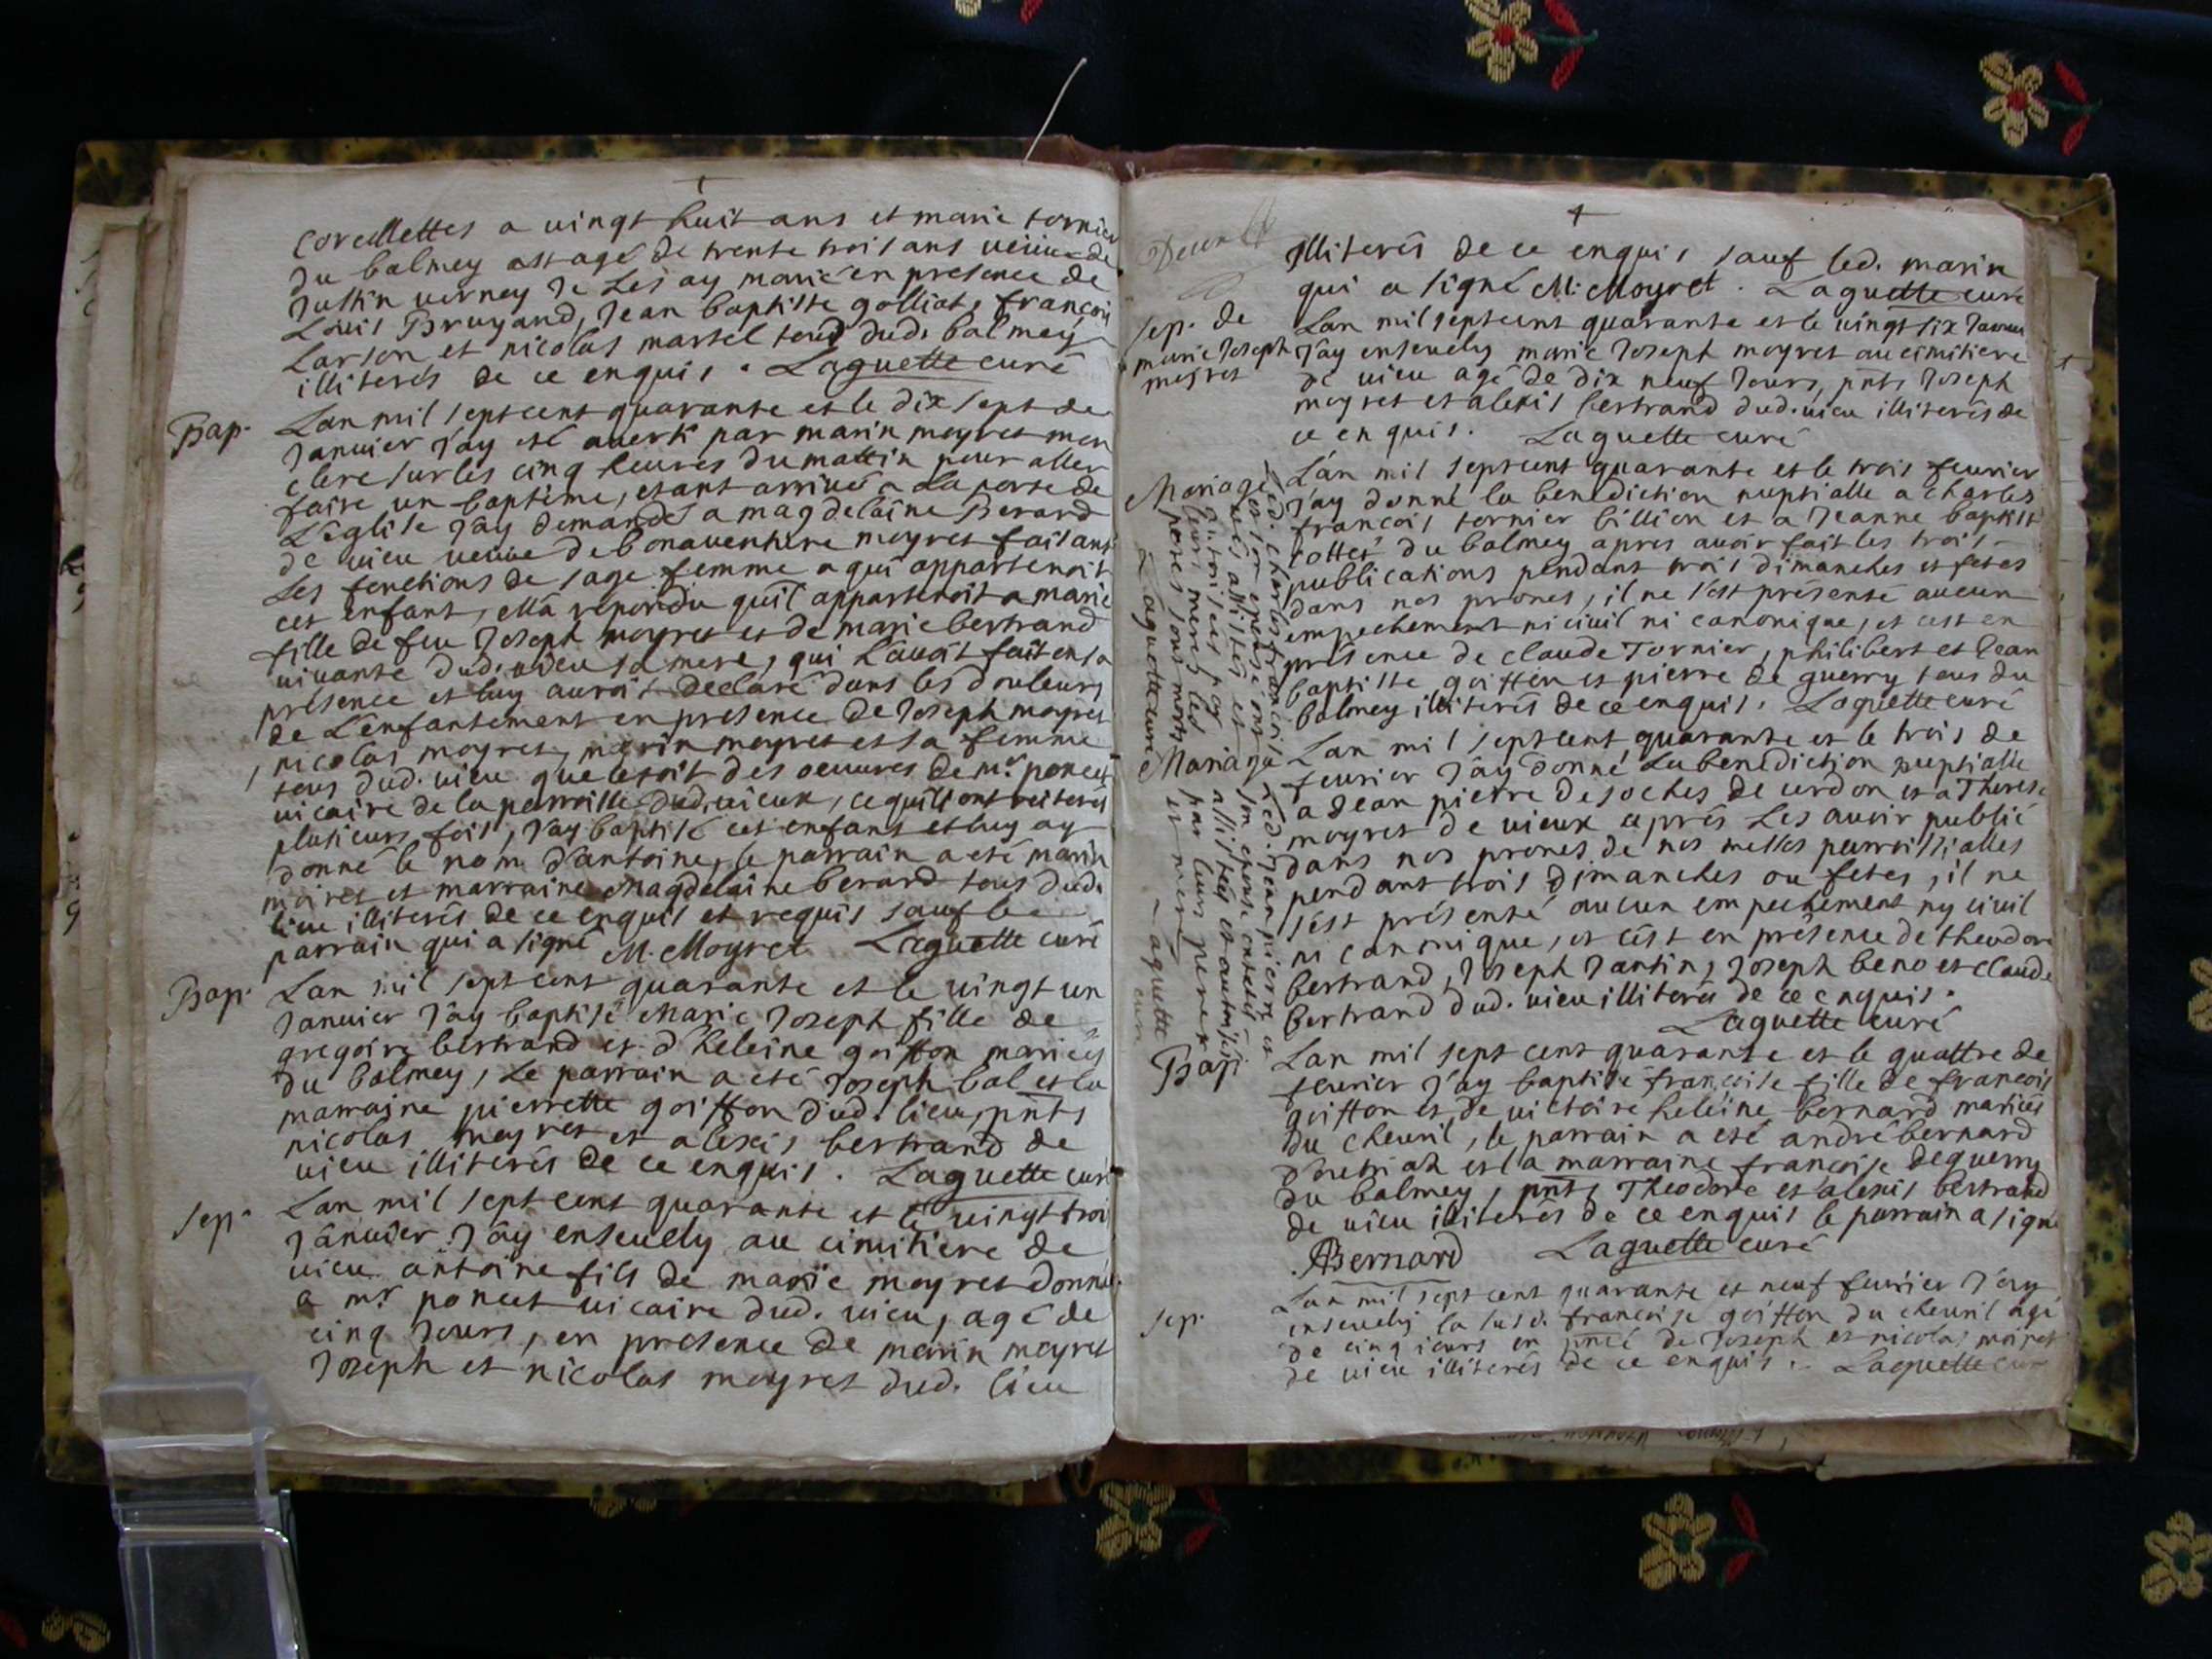 corcellettes a vingt huit ans et marie tornier
du balmey est agé de trente trois ans veuve de
Justin verney Je Les ay marié en presence de
Louis Bruyand, Jean baptiste golliat, françois
Larson et nicolas martel tous dud. balmey
illiterés de ce enquis. Laguette curé
Bap.
Lan mil sept cent quarante et le dix sept de
Janvier J'ay esté averti par marin moyret mon
clerc sur les cinq heures du mattin pour aller
faire un baptême, etant arrivé a La porte de
L'eglise J'ay demandé a magdelaine Berard
de vieu veuve de bonaventure moyret faisant
Les fonctions de sage femme a qui appartenoit
cet enfant, ella repondu qu'il appartenoit a marie
fille de feu Joseph moyret et de marie bertrand
vivante dud. vieu sa mere, qui L'avoit fait en sa
présence et luy auroit declaré dans les douleurs
de L'enfantement en presence de Joseph moyret
, nicolas moyret, marin moyret et sa femme
tous dud. vieu que cetoit des oeuvres de mr. poncet
vicaire de la parroisse dud. vieux, ce qu'ils ont reiterés
plusieurs fois, J'ay baptisé cet enfant et luy ay
donné le nom d'antoine, le parrain a eté marin
moiret et marraine Magdelaine berard tous dud.
lieu illiterés de ce enquis et requis sauf le
parrain qui a signé M. Moyret Laguette curé
Bap.
Lan mil sept cent quarante et le vingt un
Janvier J'ay baptisé Marie Joseph fille de
gregoire bertrand et d'heleine goiffon mariés
du balmey, Le parrain a eté Joseph bal et la
marraine pierrette goiffon dud. lieu, pnts
nicolas moyret et alexis bertrand de
vieu illiterés de ce enquis. Laguette curé
Sep.
Lan mil sept cent quarante et le vingt trois
Janvier J'ay ensevely au cimitiere de
vieu antoine fils de marie moyret donné
a mr. poncet vicaire dud. vieu, agé de
cinq Jours, en presence de marin moyret
Joseph et nicolas moyret dud. lieu
illiterés de ce enquis sauf led. marin
qui a signé M. Moyret. Laguette curé
Sep. de
marie Joseph
moyret
Lan mil sept cent quarante et le vingt six Janvier
J'ay ensevely marie Joseph moyret au cimitiere
de vieu agé de dix neuf Jours, pnts Joseph
moyret et alexis bertrand dud. vieu illiterés de
ce enquis. Laguette curé
Mariage
L'an mil sept cent quarante et le trois fevrier
J'ay donné la benediction nuptialle a charles
françois tornier billion et a Jeanne baptiste
cottet du balmey apres avoir fait les trois
publications pendant trois dimanches et fetes
dans nos prones, il ne s'est présenté aucun
empechement ni civil ni canonique, et cest en
présence de claude Tornier, philibert et Jean
baptiste goiffon et pierre de guerry tous du
balmey illiterés de ce enquis. Laguette curé
Led. charles françois
et son epouse ont
etés assistés et
autorisés par
leurs meres les
peres sont morts
Laguette curé
Mariage
Lan mil sept cent quarante et le trois de
fevrier J'ay donné La benediction nuptialle
a Jean pierre Desoches de cerdon et a Therese
moyret de vieux après Les avoir publié
dans nos prones de nos messes parroissialles
pendant trois dimanches ou fetes, il ne
s'est présenté aucun empechement ny civil
ni canonique, et c'est en présence de theodore
bertrand, Joseph Jantin, Joseph beno et claude
bertrand dud. vieu illiterés de ce enquis.
Laguette curé
Led. Jean pierre et
son epouse ont etés
assistés et authorisés
par leurs peres
et meres
Laguette
curé
Bap
Lan mil sept cent quarante et le quattre de
fevrier J'ay baptisé françoise fille de françois
goiffon et de victoire heleine bernard mariés
du chevril, le parrain a eté andré bernard
d'hetriat et la marraine françoise deguerry
du balmey, pnts Theodore et alexis bertrand
de vieu illiterés de ce enquis le parrain a signé
ABernard Laguette curé
Sep.
Lan mil sept cent quarante et neuf fevrier J'ay
ensevely la susd. françoise goiffon du chevril agé
de cinq iours en pnce de Joseph et nicolas moiret
de vieu illiterés de ce enquis. Laguette curé